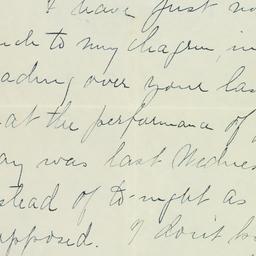 I have just no
to my chagrin, in
ading over your las
at the performance of
ay was last Wednes
stead of to-night as
upposed. I don't